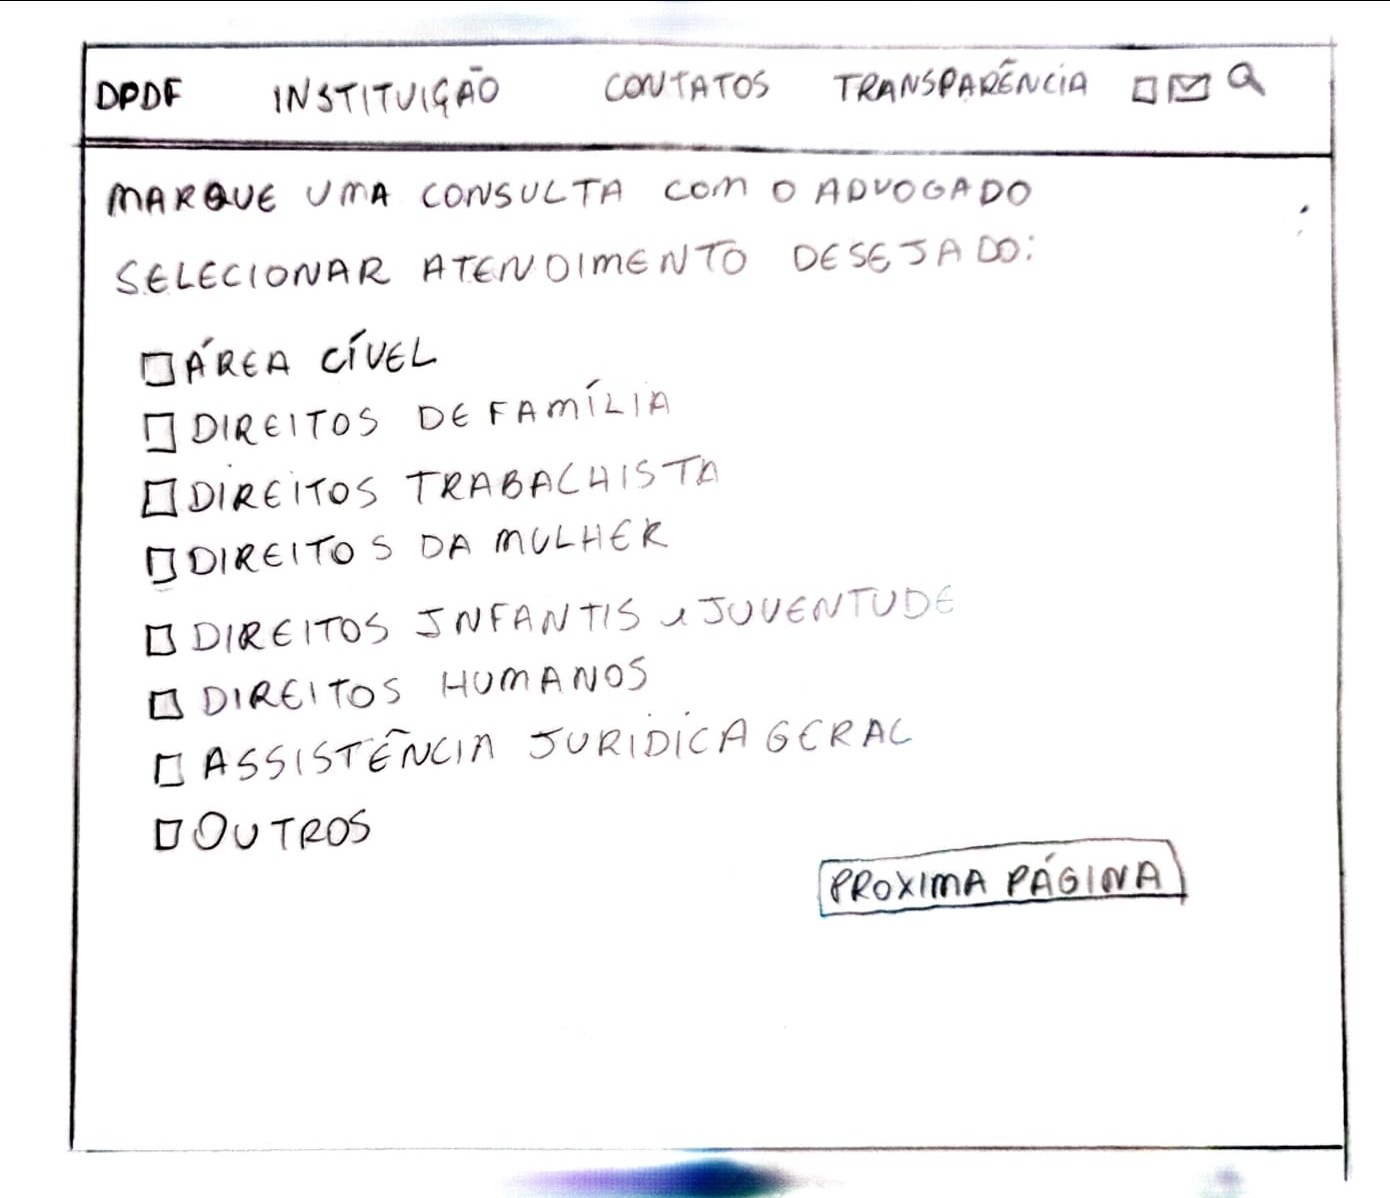 DPDF INSTITUIÇÃO CONTATOS TRANSPARÊNCIA
MARQUE UMA CONSULTA COM O ADVOGADO
SELECIONAR ATENDIMENTO DESEJADO:
ÁREA CÍVEL
DIREITOS DE FAMÍLIA
DIREITOS TRABALHISTA
DIREITOS DA MULHER
DIREITOS INFANTIS e JUVENTUDE
DIREITOS HUMANOS
ASSISTÊNCIA JURIDICA GERAL
OUTROS
PROXIMA PÁGINA